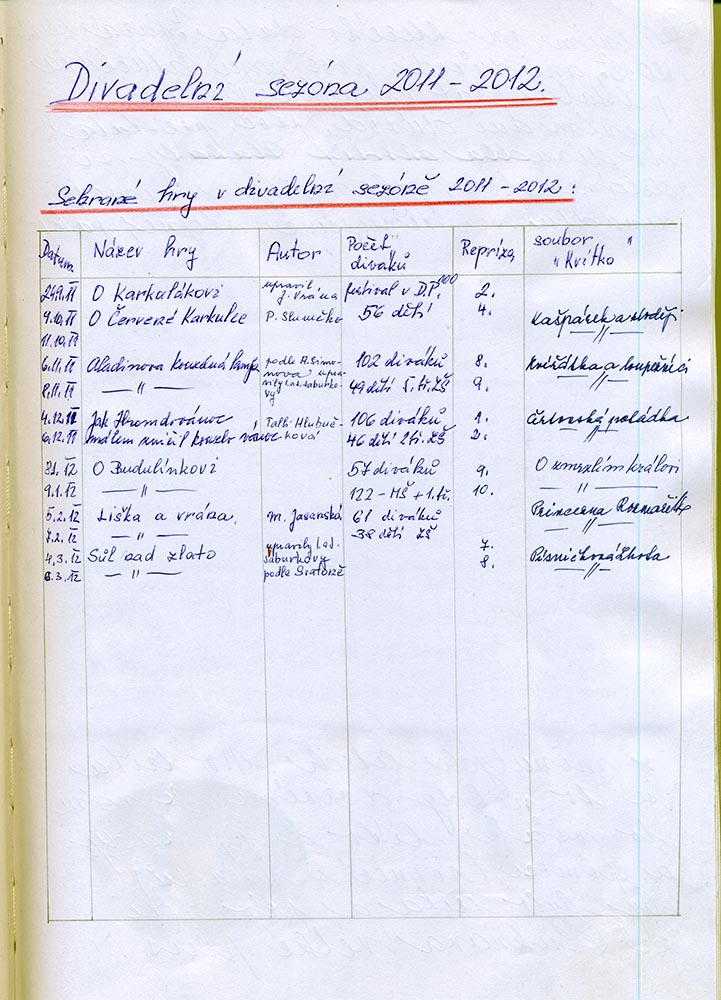 Divadelní sezóna 2011 - 2012.
Sehrané hry v divadelní sezóně 2011 - 2012:
Datum Název hry Autor Počet diváků Repríza soubor "Kvítko"
24.9.11 O Karkulákovi upravil J. Vrána festival v D.P. 100 2.
9.10.11 O Červené Karkulce P. Slunéčko 56 dětí 4. Kašpárek a zloději
11.10.11 — " —
6.11.11 Aladinova kouzelná lampa podle A. Simonova upravily I. a J. Saburkovy 102 diváků 8. Zvířátka a loupežníci
8.11.11 — " — 49 dětí 5. tř. ZŠ 9. — " —
4.12.11 Jak Hromdovánoc 106 diváků 1. Čertovská pohádka
6.12.11 málem zničil kouzlo vánoc 46 dětí 2 tř. ZŠ 2. — " —
8.1.12 O Budulínkovi 57 diváků 9. O zmrzlím královi
9.1.12 — " — 122 - MŠ + 1. tř. 10. — " —
5.2.12 Liška a vrána. M. Jasanská 61 diváků Princezna Rozmařilka
7.2.12 — " — 38 dětí ZŠ — " —
4.3.12 Sůl nad zlato upravily I. a J. Saburkovy podle Sratoně 7. Písničková škola
6.3.12 — " — 8. — " —